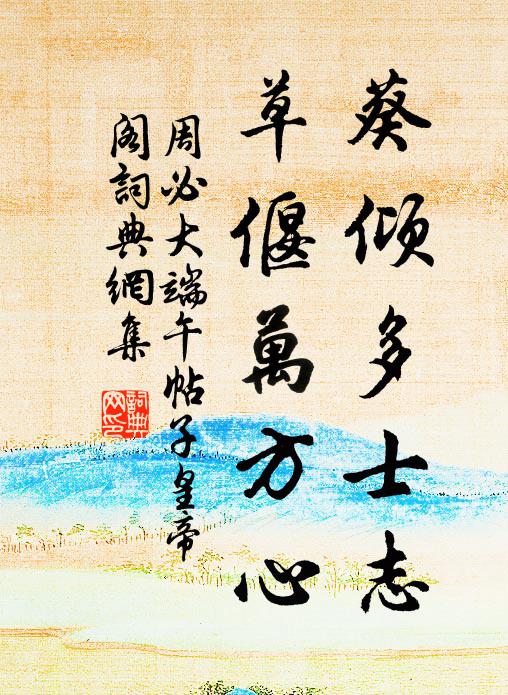 葵傾多士志
草偃萬方心
周必大端午帖子皇帝
阁詞典網集
詞典网印